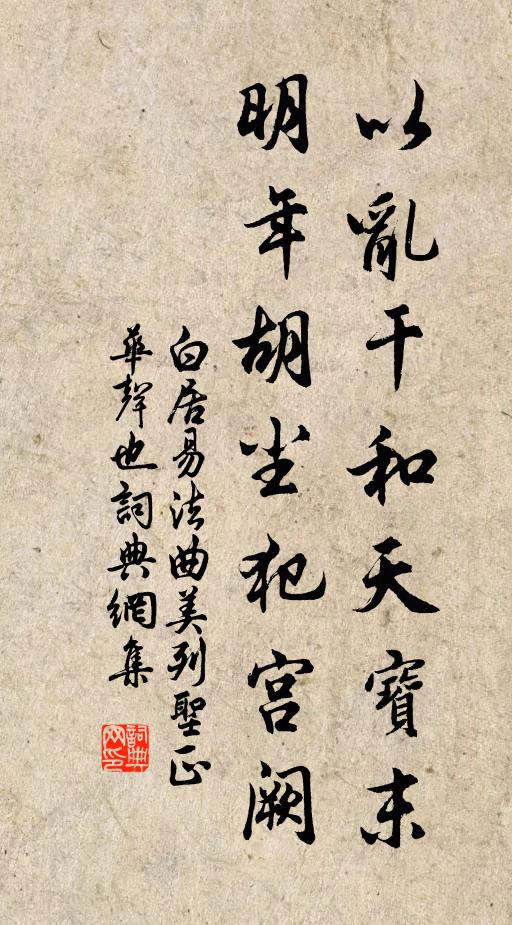 以亂干和天寶末
明年胡塵犯宮闕
白居易法曲美列聖正
華聲也詞典網集
詞典網印